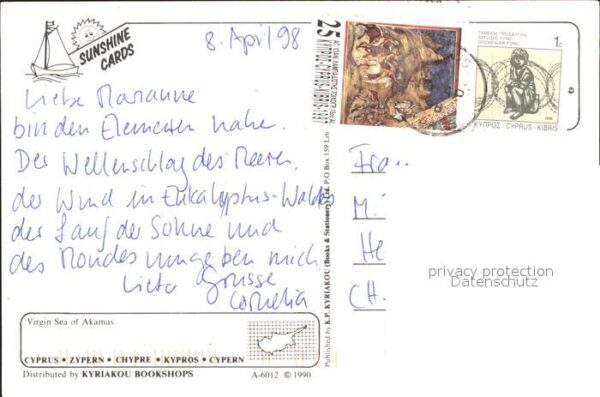 SUNSHINE
CARDS
8. April 98
Liebe Marianne
bin den Elementen nahe.
Der Wellenschlag des Meeres,
der Wind im Eukalyptus-Wald
der Lauf der Sonne und
des Mondes umgeben mich
Liebe Grüsse
Cornelia
Virgin Sea of Akamas
CYPRUS • ZYPERN • CHYPRE • KYPROS • CYPERN
Distributed by KYRIAKOU BOOKSHOPS
A-6012 © 1990
Published by K.P. KYRIAKOU (Books & Stationery) Ltd. P.O Box 159 Lim
25
ΚΥΠΡΟΣ-CYPRUS-KIBRIS
1c
REFUGEE FUND
GÖÇMENLER FONU
ΚΥΠΡΟΣ - CYPRUS - KIBRIS
Fra
M
He
CH-
privacy protection
Datenschutz